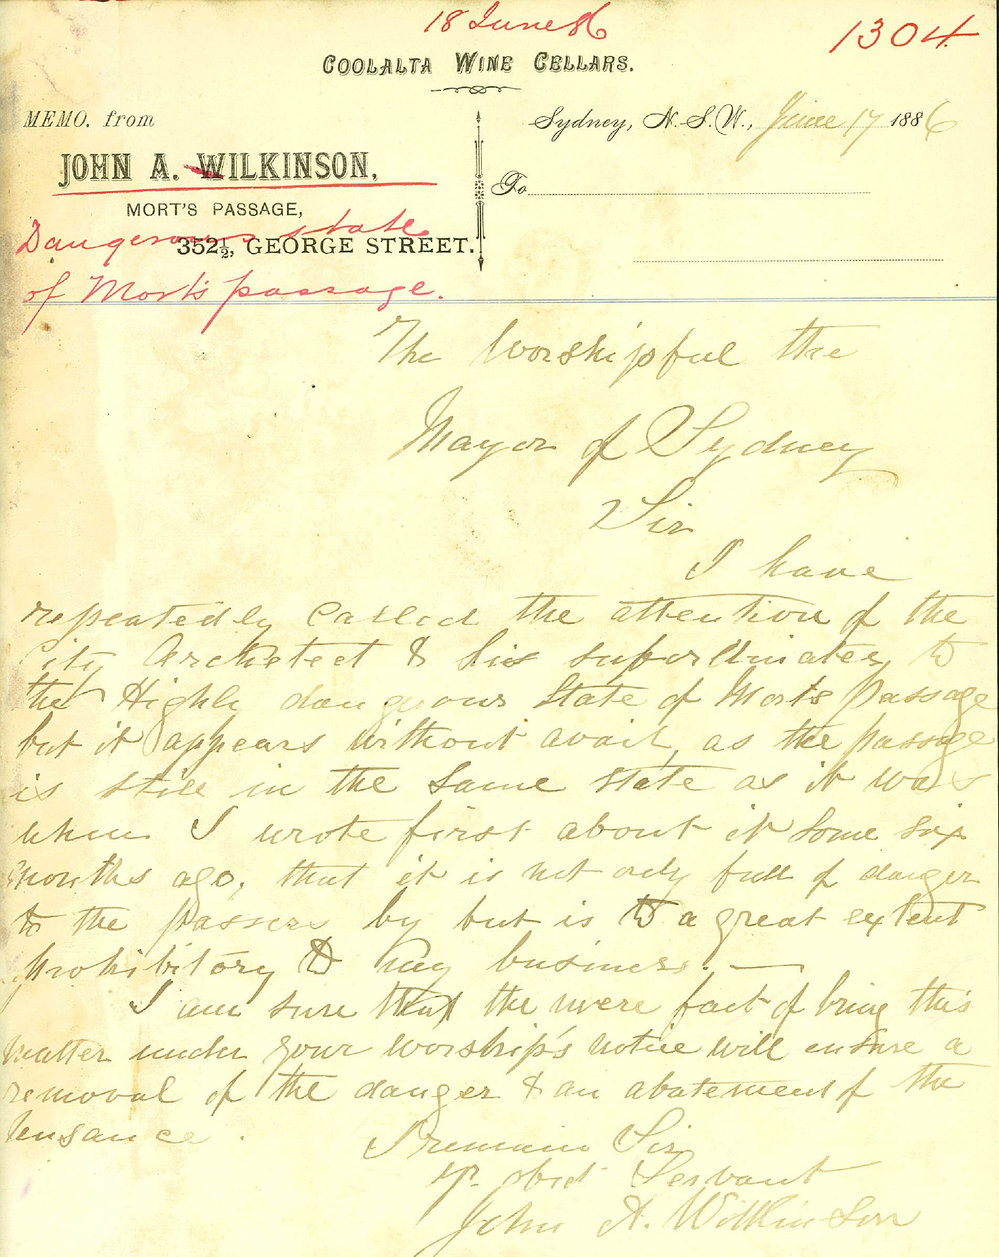 18 June 86
1304
COOLALTA WINE CELLARS.
MEMO. from
Sydney, N.S.W., June 17 1886
JOHN A. WILKINSON,
To
MORT'S PASSAGE,
352½, GEORGE STREET.
Dangerous state
of Mort's passage.
The Worshipful the
Mayor of Sydney
Sir
I have
repeatedly called the attention of the
City Architect & his subordinates to
the Highly dangerous State of Morts Passage
but it appears without avail, as the passage
is still in the same state as it was
when I wrote first about it some six
months ago, that it is not only full of danger
to the passers by but is to a great extent
prohibitory to my business. —
I am sure that the mere fact of bring this
matter under your worship's notice will ensure a
removal of the danger & an abatement of the
nusance.
I remain Sir
yr. obdt Servant
John A. Wilkinson